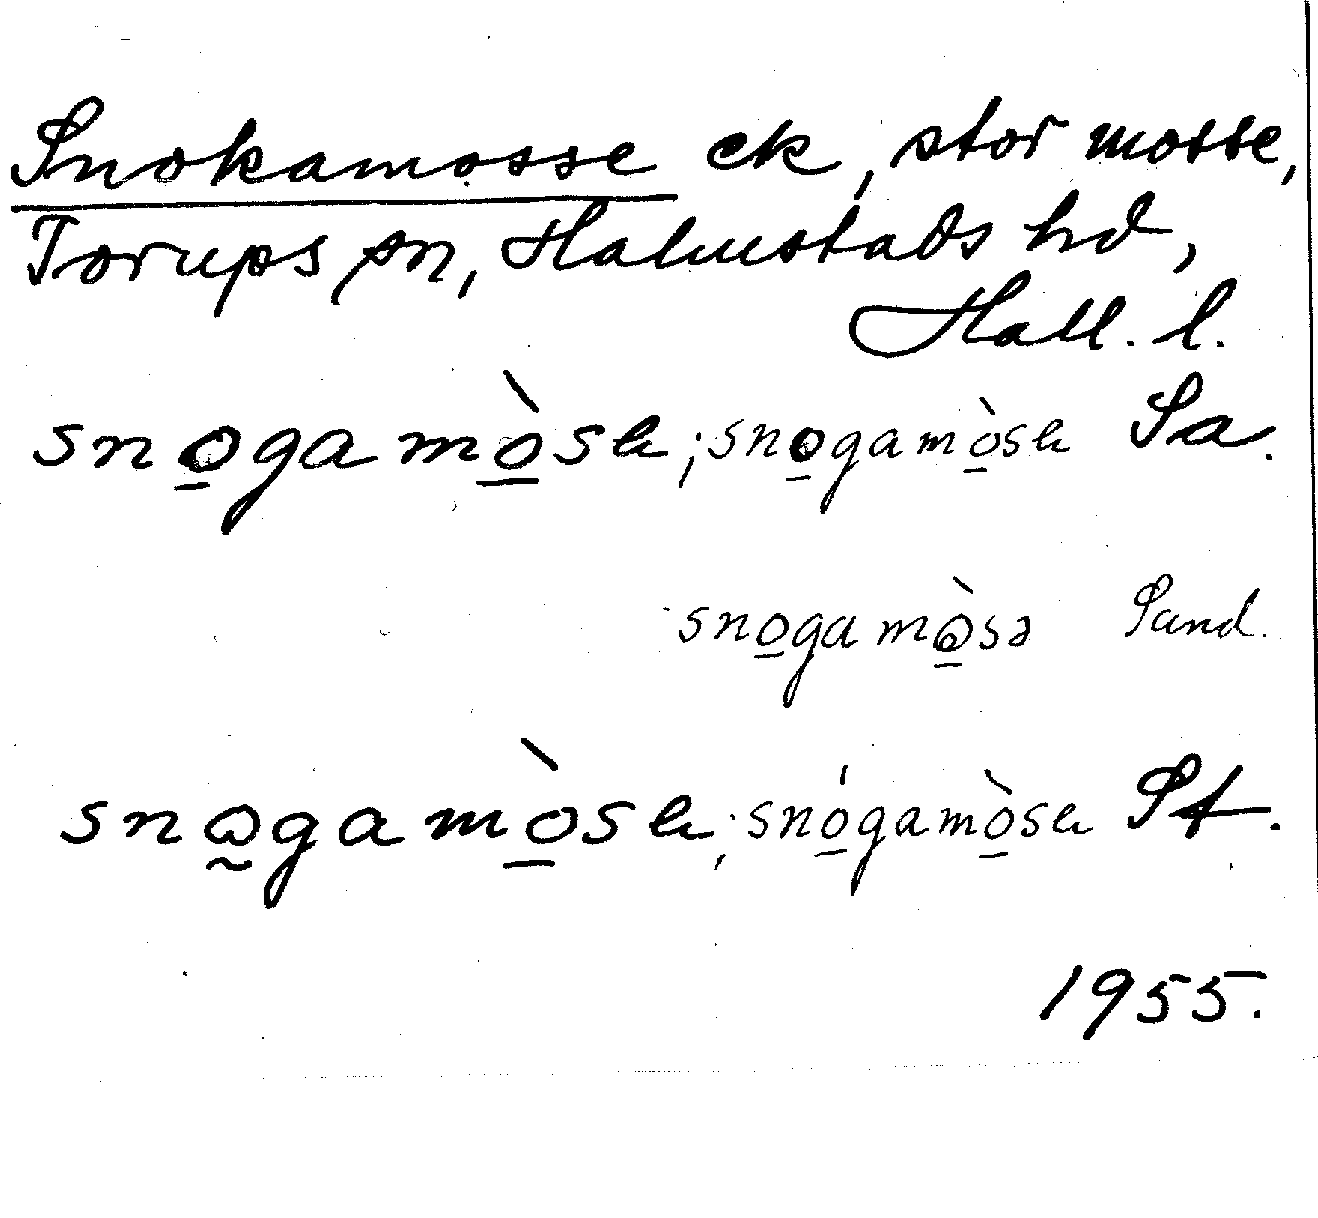 Snokamosse ek, stor mosse,
Torups sn, Halmstads hd,
Hall. l.
sno̲gamò̲sɐ; sno̲gamò̲sɐ Sa.
sno̲gamò̲sə Sand.
snɷ̰gamò̲sɐ; snó̲gamò̲sɐ St.
1955.